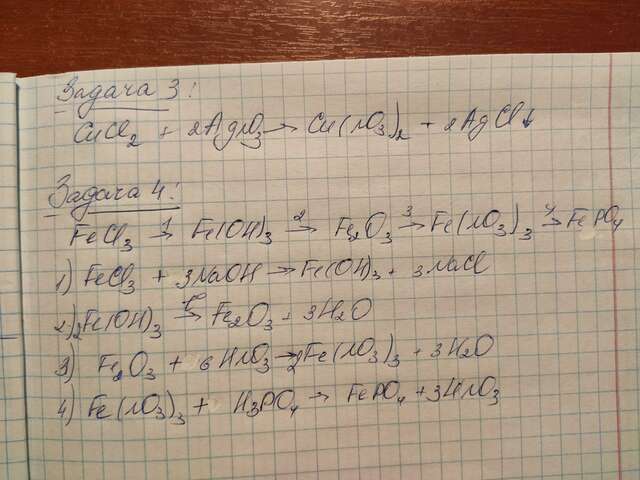 Задача 3:
CuCl₂ + 2AgNO₃ → Cu(NO₃)₂ + 2AgCl↓
Задача 4:
FeCl₃ →¹ Fe(OH)₃ →² Fe₂O₃ →³ Fe(NO₃)₃ →⁴ FePO₄
1) FeCl₃ + 3NaOH → Fe(OH)₃ + 3NaCl
2) 2Fe(OH)₃ →t° Fe₂O₃ + 3H₂O
3) Fe₂O₃ + 6HNO₃ → 2Fe(NO₃)₃ + 3H₂O
4) Fe(NO₃)₃ + H₃PO₄ → FePO₄ + 3HNO₃